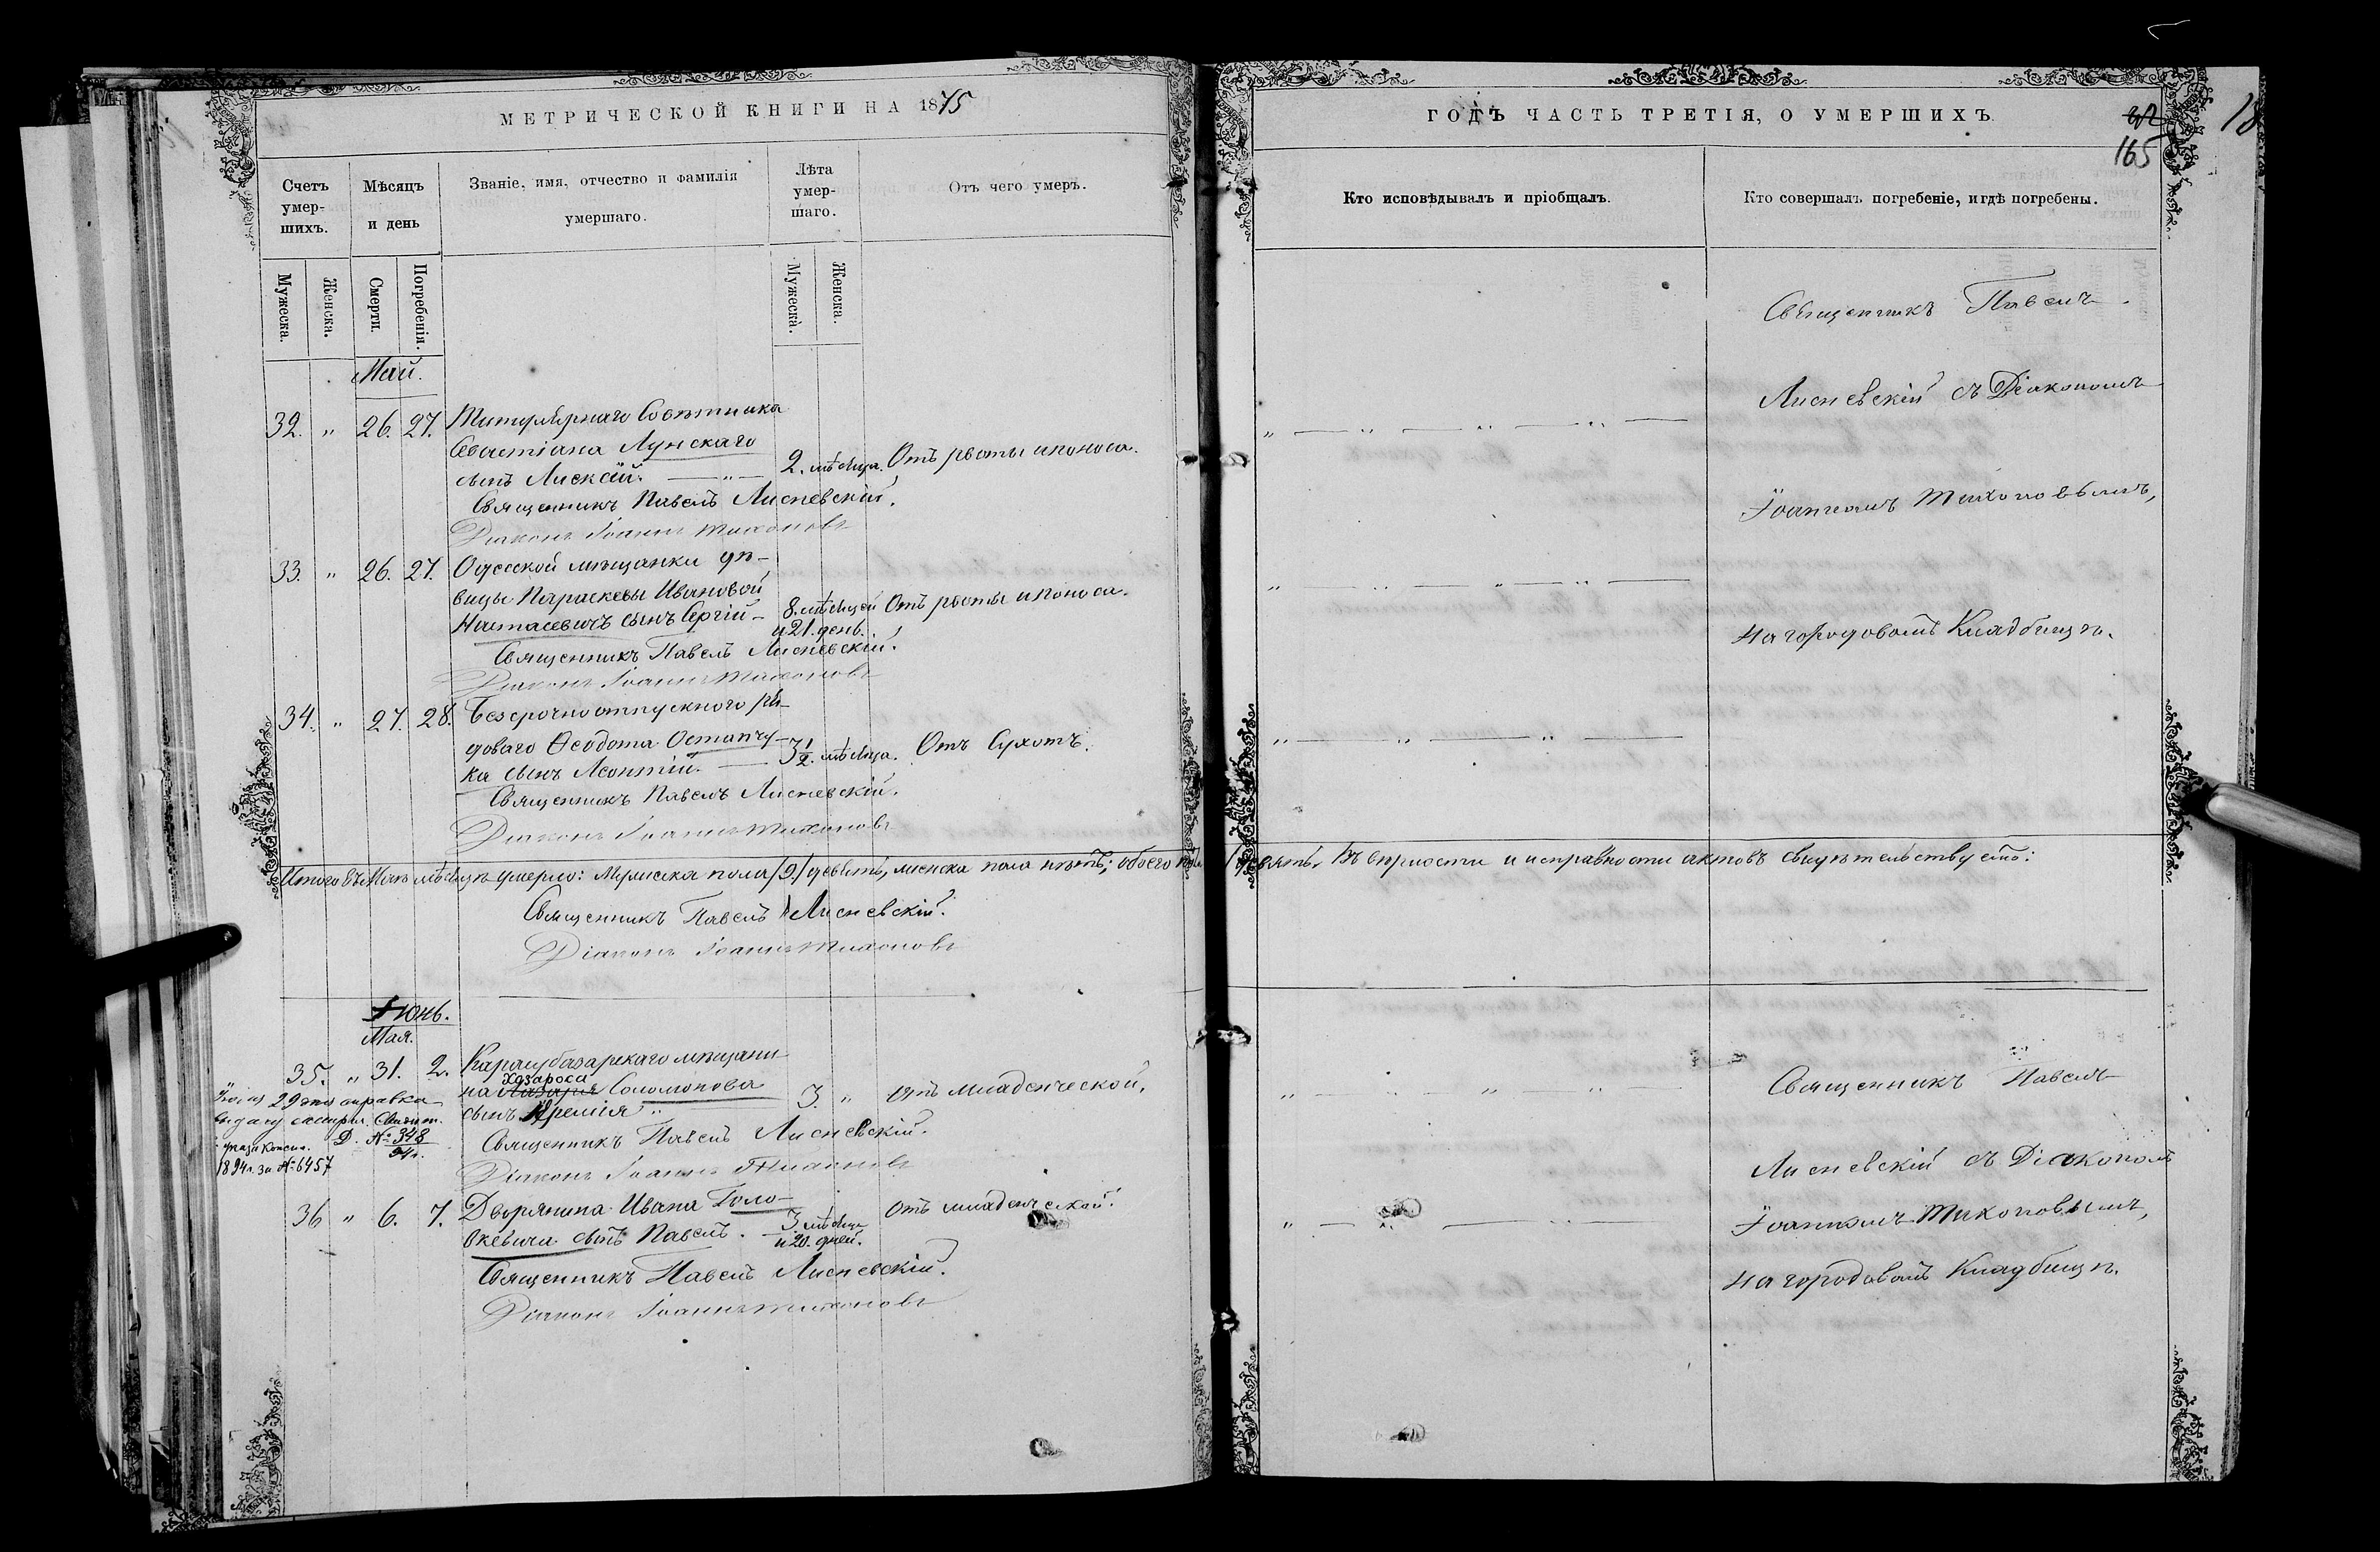 МЕТРИЧЕСКОЙ КНИГИ НА 1875
Счетъ умер-шихъ.
Мѣсяцъ и день
Званіе, имя, отчество и фамилія умершаго.
Лѣта умер-шаго.
Отъ чего умеръ.
Мужеска.
Женска.
Смерти.
Погребенія.
Мужеска.
Женска.
Май.
32. " 26. 27. Титулярнаго Совѣтника
Севастіана Лунскаго
сынъ Алексѣй. — " — 2. мѣсяца. Отъ рвоты и поноса.
Священникъ Павелъ Лисневскій.
Діаконъ Іоаннъ Тихоновъ
33. " 26. 27. Одесской мѣщанки дѣ-
вицы Параскевы Ивановой
Настасевичъ сынъ Сергій — 8. мѣсяцей и 21. день. Отъ рвоты и поноса.
Священникъ Павелъ Лисневскій.
Діаконъ Іоаннъ Тихоновъ
34. " 27. 28. Безсрочноотпускного ря-
доваго Ѳеодота Остапчу-
ка сынъ Леонтій. — 3 1/2. мѣсяца. Отъ Сухотъ.
Священникъ Павелъ Лисневскій.
Діаконъ Іоаннъ Тихоновъ
Итого въ Маѣ мѣсяцѣ умерло: Мужеска пола /9/ девять, женска пола нѣтъ; обоего пола /9/ девять. Въ вѣрности и исправности актовъ свидѣтельствуетъ:
Священникъ Павелъ Лисневскій.
Діаконъ Іоаннъ Тихоновъ
Іюнь.
Мая.
35. " 31. 2. Карасубазарскаго мѣщани-
на Хазароса Соломонова
сынъ Іеремія " 3. " отъ младенческой.
Священникъ Павелъ Лисневскій.
Діаконъ Іоаннъ Тихоновъ
29 дня справка
выдачу Свидѣт.
Д. № 348
94 г.
указъ Консис.
1894 г. за № 6457
36 " 6. 7. Дворянина Ивана Голо-
вкевича сынъ Павелъ. — 3 мѣсяца и 20. дней. Отъ младенческой.
Священникъ Павелъ Лисневскій.
Діаконъ Іоаннъ Тихоновъ
ГОДЪ ЧАСТЬ ТРЕТІЯ, О УМЕРШИХЪ
165
18
Кто исповѣдывалъ и пріобщалъ.
Кто совершалъ погребеніе, и гдѣ погребены.
Священникъ Павелъ
Лисневскій съ Діакономъ
Іоанномъ Тихоновымъ,
на городовомъ Кладбищѣ.
Священникъ Павелъ
Лисневскій съ Діакономъ
Іоанномъ Тихоновымъ,
на городовомъ Кладбищѣ.